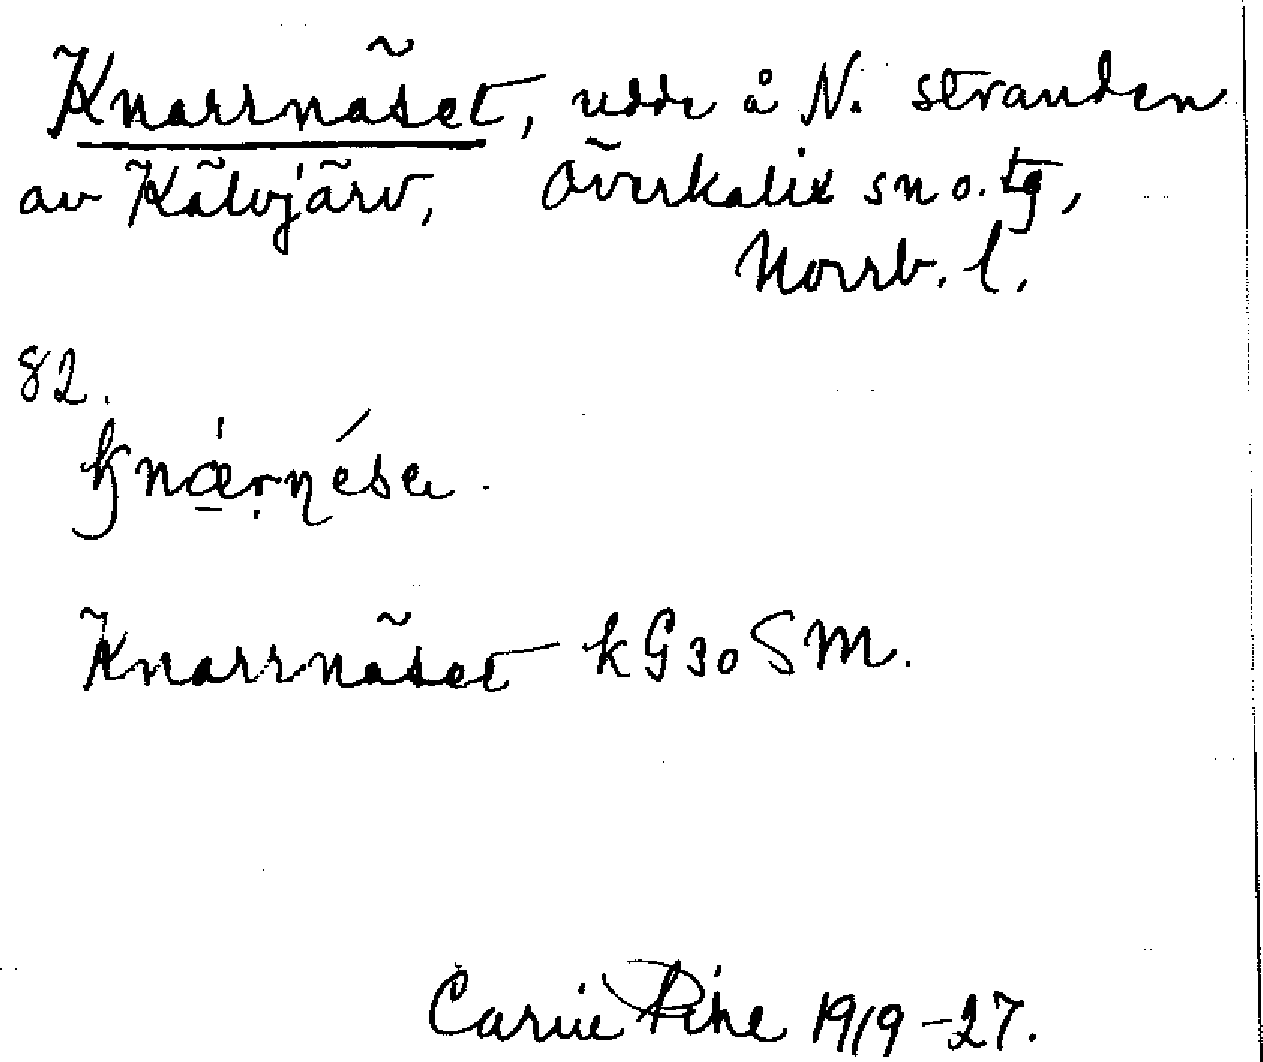 Knarrnäset, udde å N. stranden
av Kälvjärv, Överkalix sn o. tg,
Norrb. l.
82.
Knarrnäset kG30SM.
Carin Pihl 1919-27.